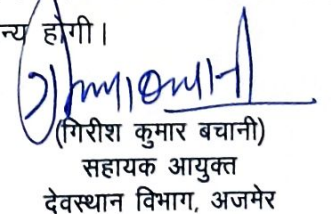 न्य होगी।
(गिरीश कुमार बचानी)
सहायक आयुक्त
देवस्थान विभाग, अजमेर